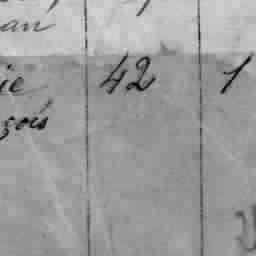 an
ie 42 1
çois